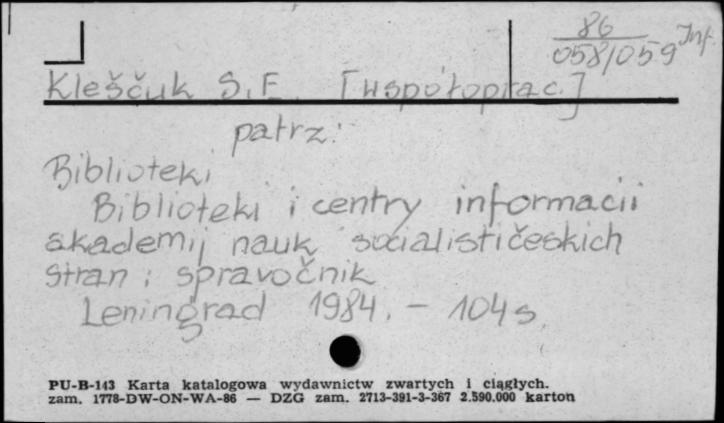 86
058/059 Inf.
Kleščuk S. E. [współoprac.]
patrz:
Biblioteki
Biblioteki i centry informacii
akademij nauk socialističeskich
stran : spravočnik
Leningrad 1984. - 104 s.
PU-B-143 Karta katalogowa wydawnictw zwartych i ciągłych.
zam. 1778-DW-ON-WA-86 — DZG zam. 2713-391-3-367 2.590.000 karton